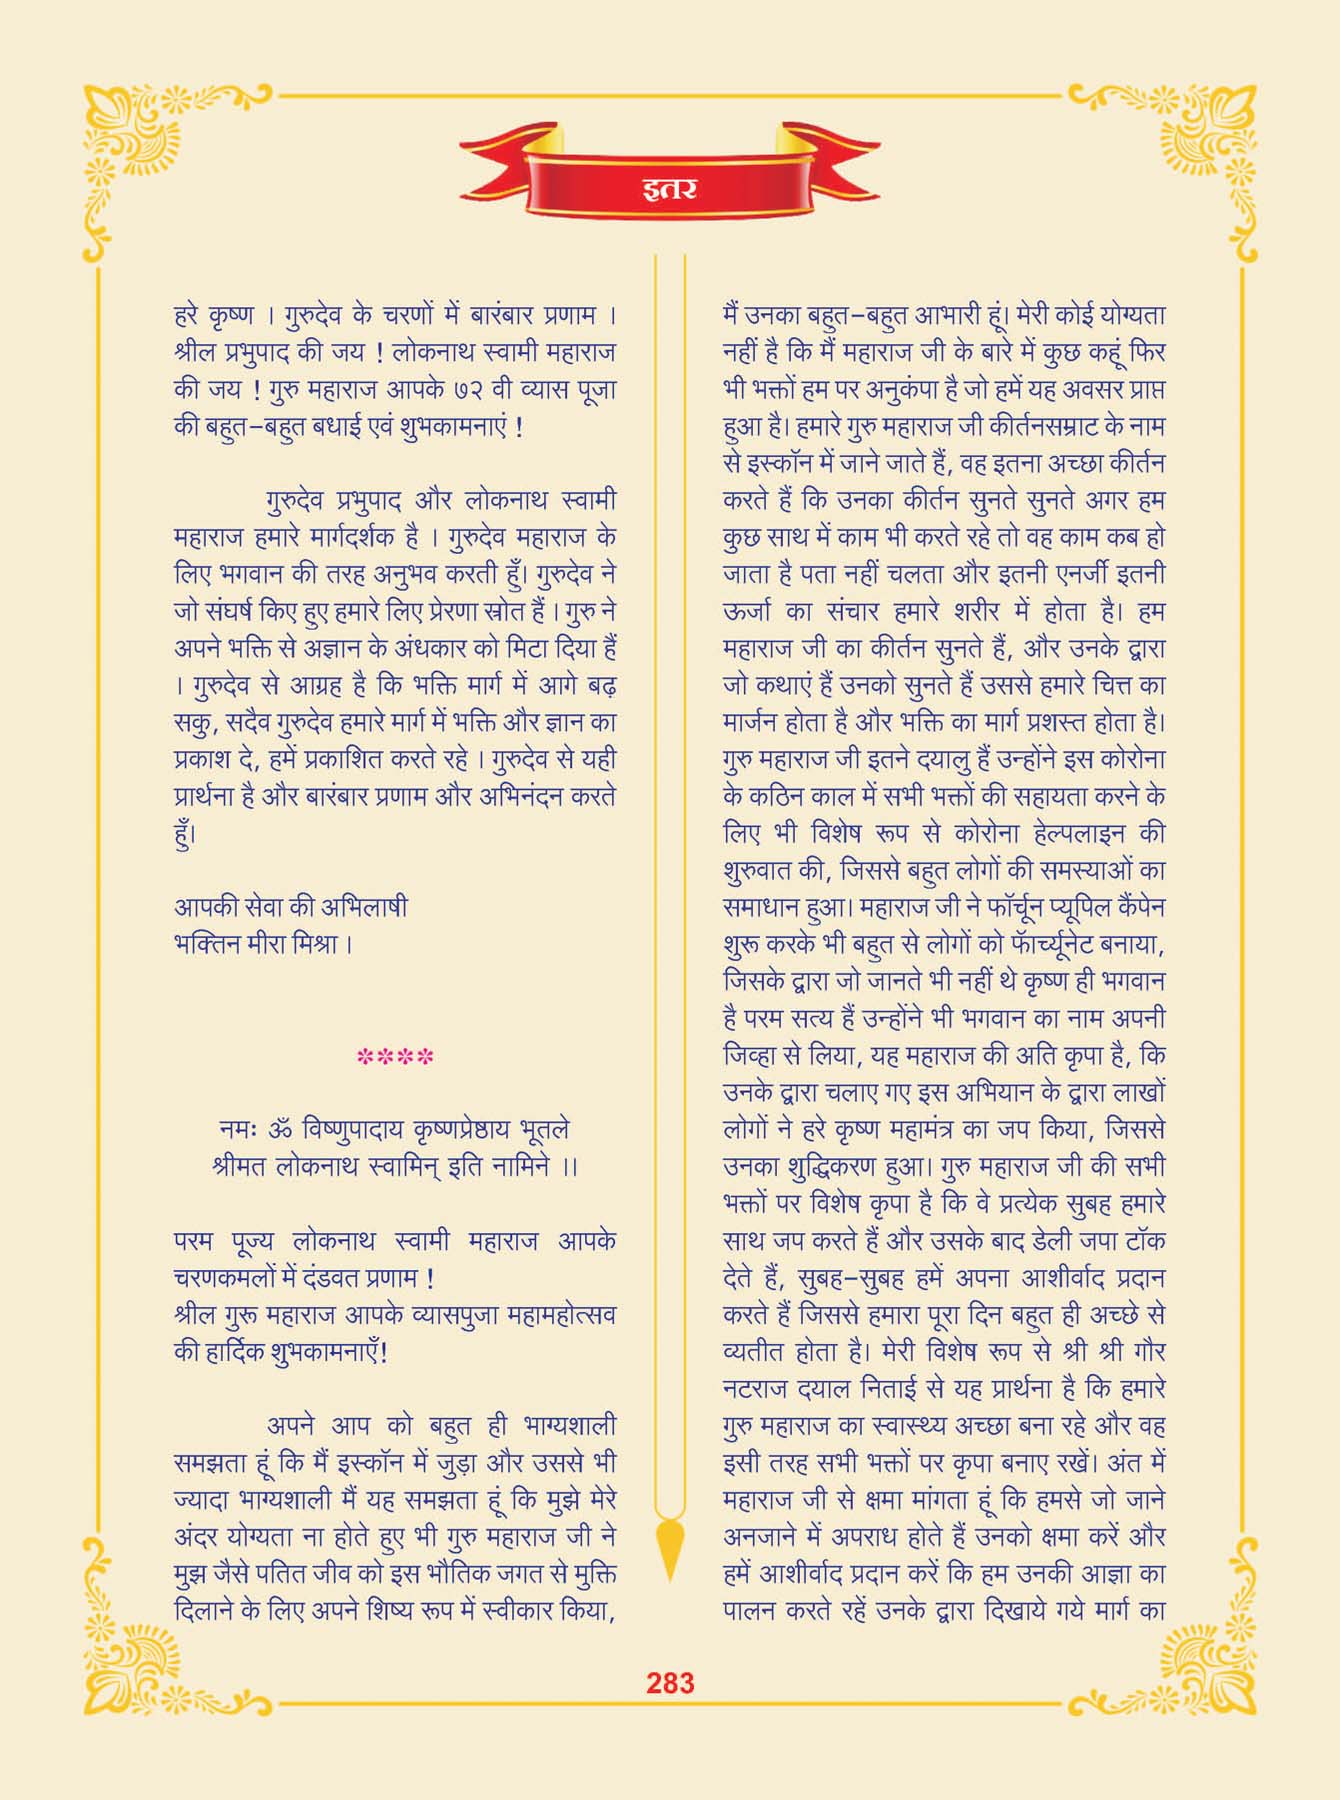 इतर
हरे कृष्ण । गुरुदेव के चरणों में बारंबार प्रणाम ।
श्रील प्रभुपाद की जय ! लोकनाथ स्वामी महाराज
की जय ! गुरु महाराज आपके ७२ वी व्यास पूजा
की बहुत–बहुत बधाई एवं शुभकामनाएं !
गुरुदेव प्रभुपाद और लोकनाथ स्वामी
महाराज हमारे मार्गदर्शक है । गुरुदेव महाराज के
लिए भगवान की तरह अनुभव करती हुँ। गुरुदेव ने
जो संघर्ष किए हुए हमारे लिए प्रेरणा स्रोत हैं । गुरु ने
अपने भक्ति से अज्ञान के अंधकार को मिटा दिया हैं
। गुरुदेव से आग्रह है कि भक्ति मार्ग में आगे बढ़
सकु, सदैव गुरुदेव हमारे मार्ग में भक्ति और ज्ञान का
प्रकाश दे, हमें प्रकाशित करते रहे । गुरुदेव से यही
प्रार्थना है और बारंबार प्रणाम और अभिनंदन करते
हुँ।
आपकी सेवा की अभिलाषी
भक्तिन मीरा मिश्रा ।
****
नमः ॐ विष्णुपादाय कृष्णप्रेष्ठाय भूतले
श्रीमत लोकनाथ स्वामिन् इति नामिने ।।
परम पूज्य लोकनाथ स्वामी महाराज आपके
चरणकमलों में दंडवत प्रणाम !
श्रील गुरू महाराज आपके व्यासपुजा महामहोत्सव
की हार्दिक शुभकामनाएँ!
अपने आप को बहुत ही भाग्यशाली
समझता हूं कि मैं इस्कॉन में जुड़ा और उससे भी
ज्यादा भाग्यशाली मैं यह समझता हूं कि मुझे मेरे
अंदर योग्यता ना होते हुए भी गुरु महाराज जी ने
मुझ जैसे पतित जीव को इस भौतिक जगत से मुक्ति
दिलाने के लिए अपने शिष्य रूप में स्वीकार किया,
मैं उनका बहुत–बहुत आभारी हूं। मेरी कोई योग्यता
नहीं है कि मैं महाराज जी के बारे में कुछ कहूं फिर
भी भक्तों हम पर अनुकंपा है जो हमें यह अवसर प्राप्त
हुआ है। हमारे गुरु महाराज जी कीर्तनसम्राट के नाम
से इस्कॉन में जाने जाते हैं, वह इतना अच्छा कीर्तन
करते हैं कि उनका कीर्तन सुनते सुनते अगर हम
कुछ साथ में काम भी करते रहे तो वह काम कब हो
जाता है पता नहीं चलता और इतनी एनर्जी इतनी
ऊर्जा का संचार हमारे शरीर में होता है। हम
महाराज जी का कीर्तन सुनते हैं, और उनके द्वारा
जो कथाएं हैं उनको सुनते हैं उससे हमारे चित्त का
मार्जन होता है और भक्ति का मार्ग प्रशस्त होता है।
गुरु महाराज जी इतने दयालु हैं उन्होंने इस कोरोना
के कठिन काल में सभी भक्तों की सहायता करने के
लिए भी विशेष रूप से कोरोना हेल्पलाइन की
शुरुवात की, जिससे बहुत लोगों की समस्याओं का
समाधान हुआ। महाराज जी ने फॉर्चून प्यूपिल कैंपेन
शुरू करके भी बहुत से लोगों को फॅार्च्यूनेट बनाया,
जिसके द्वारा जो जानते भी नहीं थे कृष्ण ही भगवान
है परम सत्य हैं उन्होंने भी भगवान का नाम अपनी
जिव्हा से लिया, यह महाराज की अति कृपा है, कि
उनके द्वारा चलाए गए इस अभियान के द्वारा लाखों
लोगों ने हरे कृष्ण महामंत्र का जप किया, जिससे
उनका शुद्धिकरण हुआ। गुरु महाराज जी की सभी
भक्तों पर विशेष कृपा है कि वे प्रत्येक सुबह हमारे
साथ जप करते हैं और उसके बाद डेली जपा टॉक
देते हैं, सुबह–सुबह हमें अपना आशीर्वाद प्रदान
करते हैं जिससे हमारा पूरा दिन बहुत ही अच्छे से
व्यतीत होता है। मेरी विशेष रूप से श्री श्री गौर
नटराज दयाल निताई से यह प्रार्थना है कि हमारे
गुरु महाराज का स्वास्थ्य अच्छा बना रहे और वह
इसी तरह सभी भक्तों पर कृपा बनाए रखें। अंत में
महाराज जी से क्षमा मांगता हूं कि हमसे जो जाने
अनजाने में अपराध होते हैं उनको क्षमा करें और
हमें आशीर्वाद प्रदान करें कि हम उनकी आज्ञा का
पालन करते रहें उनके द्वारा दिखाये गये मार्ग का
283